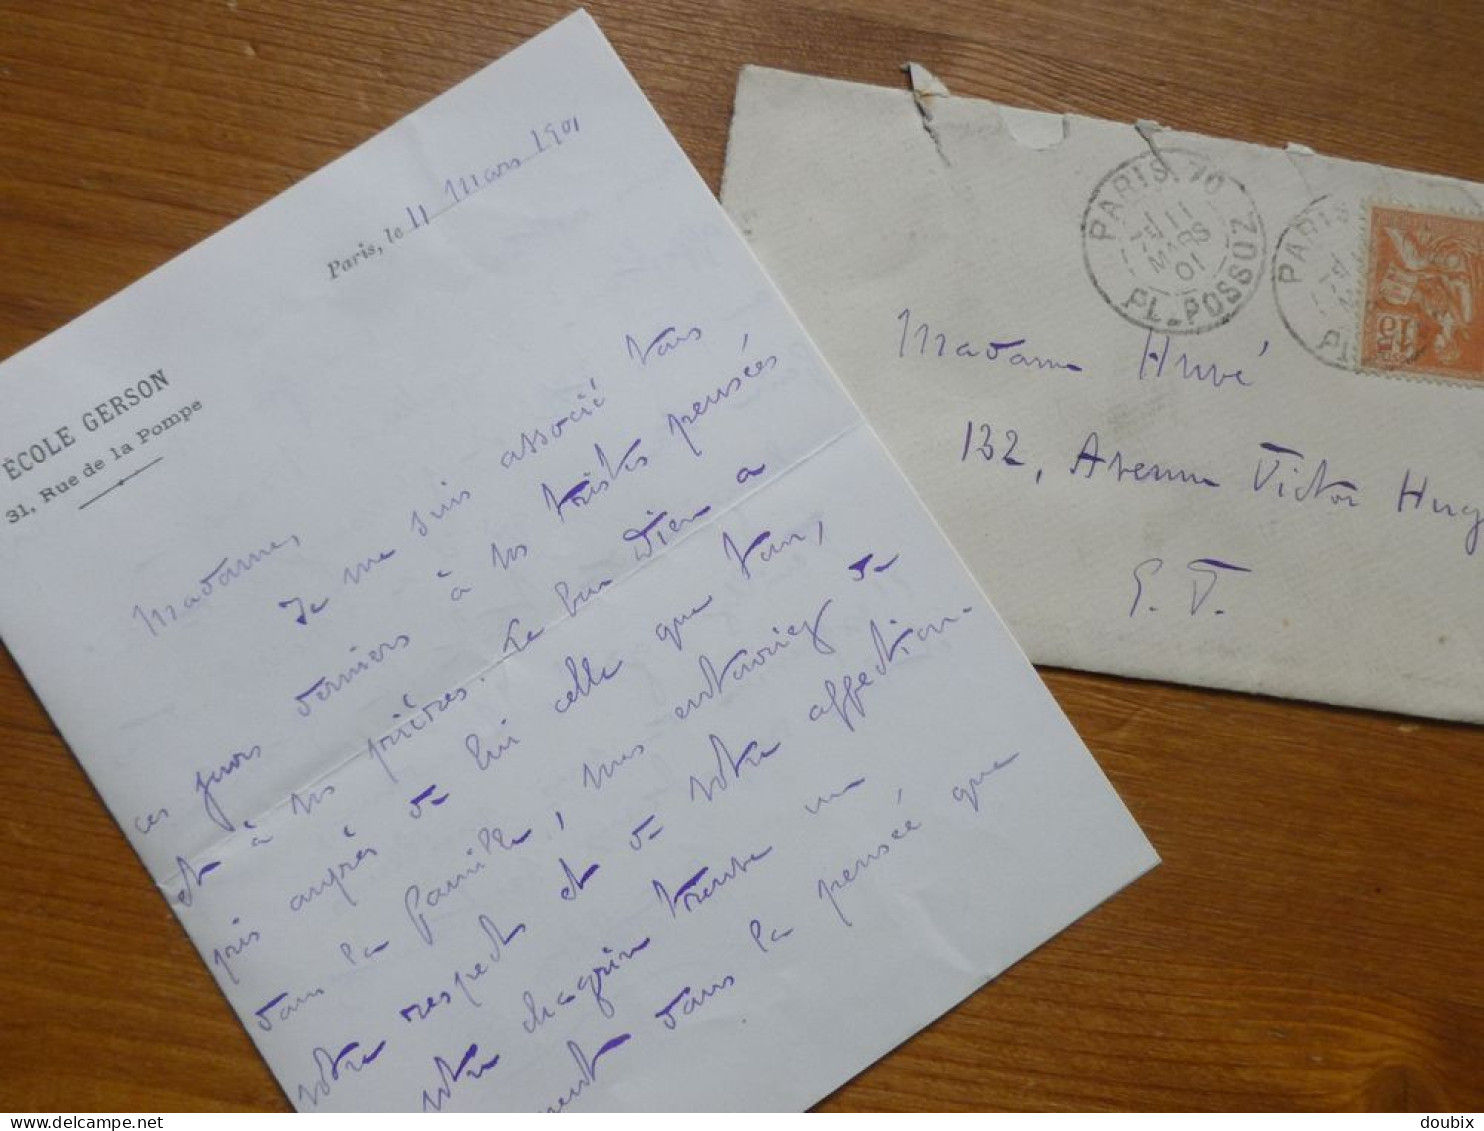 ÉCOLE GERSON
31, Rue de la Pompe
Paris, le 11 Mars 1901
Madame,
Je me suis associé tous
ces jours derniers à vos tristes pensées
et à vos prières. Le bon Dieu a
pris auprès de lui celle que tous,
dans la famille, vous entouriez de
votre respect et de votre affection.
votre chagrin trouve un
dans la pensée que
PARIS 70
11
MARS
01
PL-POSSOZ
PARIS
15
Madame Hervé
132, Avenue Victor Hugo
E. V.
doubix